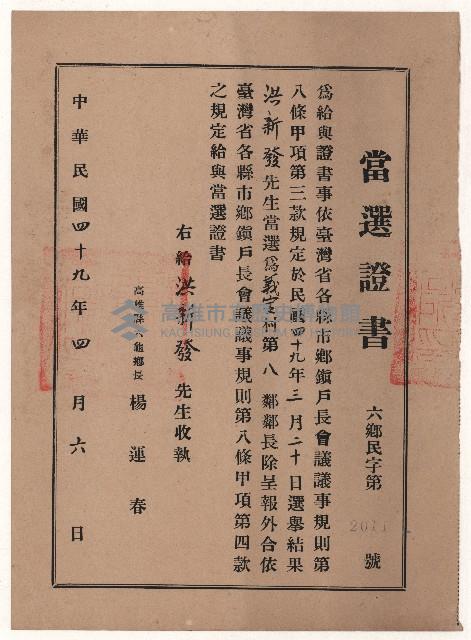 當選證書
六鄉民字第 2011 號
為給與證書事依臺灣省各縣市鄉鎮戶長會議議事規則第
八條甲項第三款規定於民國四十九年三月二十日選舉結果
洪新發先生當選為義寶村第八鄰鄰長除呈報外合依
臺灣省各縣市鄉鎮戶長會議議事規則第八條甲項第四款
之規定給與當選證書
右給 洪新發 先生收執
高雄縣六龜鄉長 楊運春
中華民國四十九年四月六日
高雄市立歷史博物館
KAOHSIUNG MUSEUM OF HISTORY